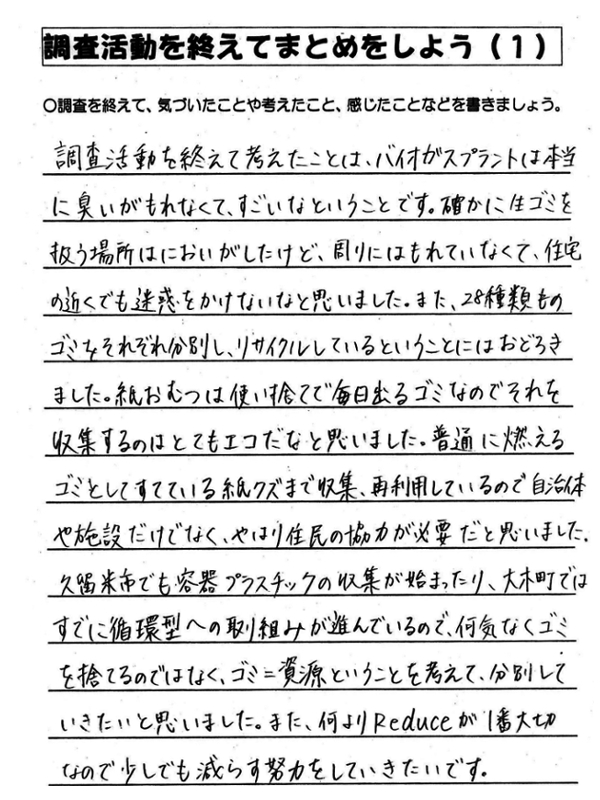 調査活動を終えてまとめをしよう（１）
○調査を終えて、気づいたことや考えたこと、感じたことなどを書きましょう。
調査活動を終えて考えたことは、バイオガスプラントは本当
に臭いがもれなくて、すごいなということです。確かに生ゴミを
扱う場所はにおいがしたけど、周りにはもれていなくて、住宅
の近くでも迷惑をかけないなと思いました。また、28種類もの
ゴミをそれぞれ分別し、リサイクルしているということにはおどろき
ました。紙おむつは使い捨てで毎日出るゴミなのでそれを
収集するのはとてもエコだなと思いました。普通に燃える
ゴミとしてすてている紙クズまで収集、再利用しているので自治体
や施設だけでなく、やはり住民の協力が必要だと思いました。
久留米市でも容器プラスチックの収集が始まったり、大木町では
すでに循環型への取り組みが進んでいるので、何気なくゴミ
を捨てるのではなく、ゴミ＝資源ということを考えて、分別して
いきたいと思いました。また、何よりReduceが1番大切
なので少しでも減らす努力をしていきたいです。